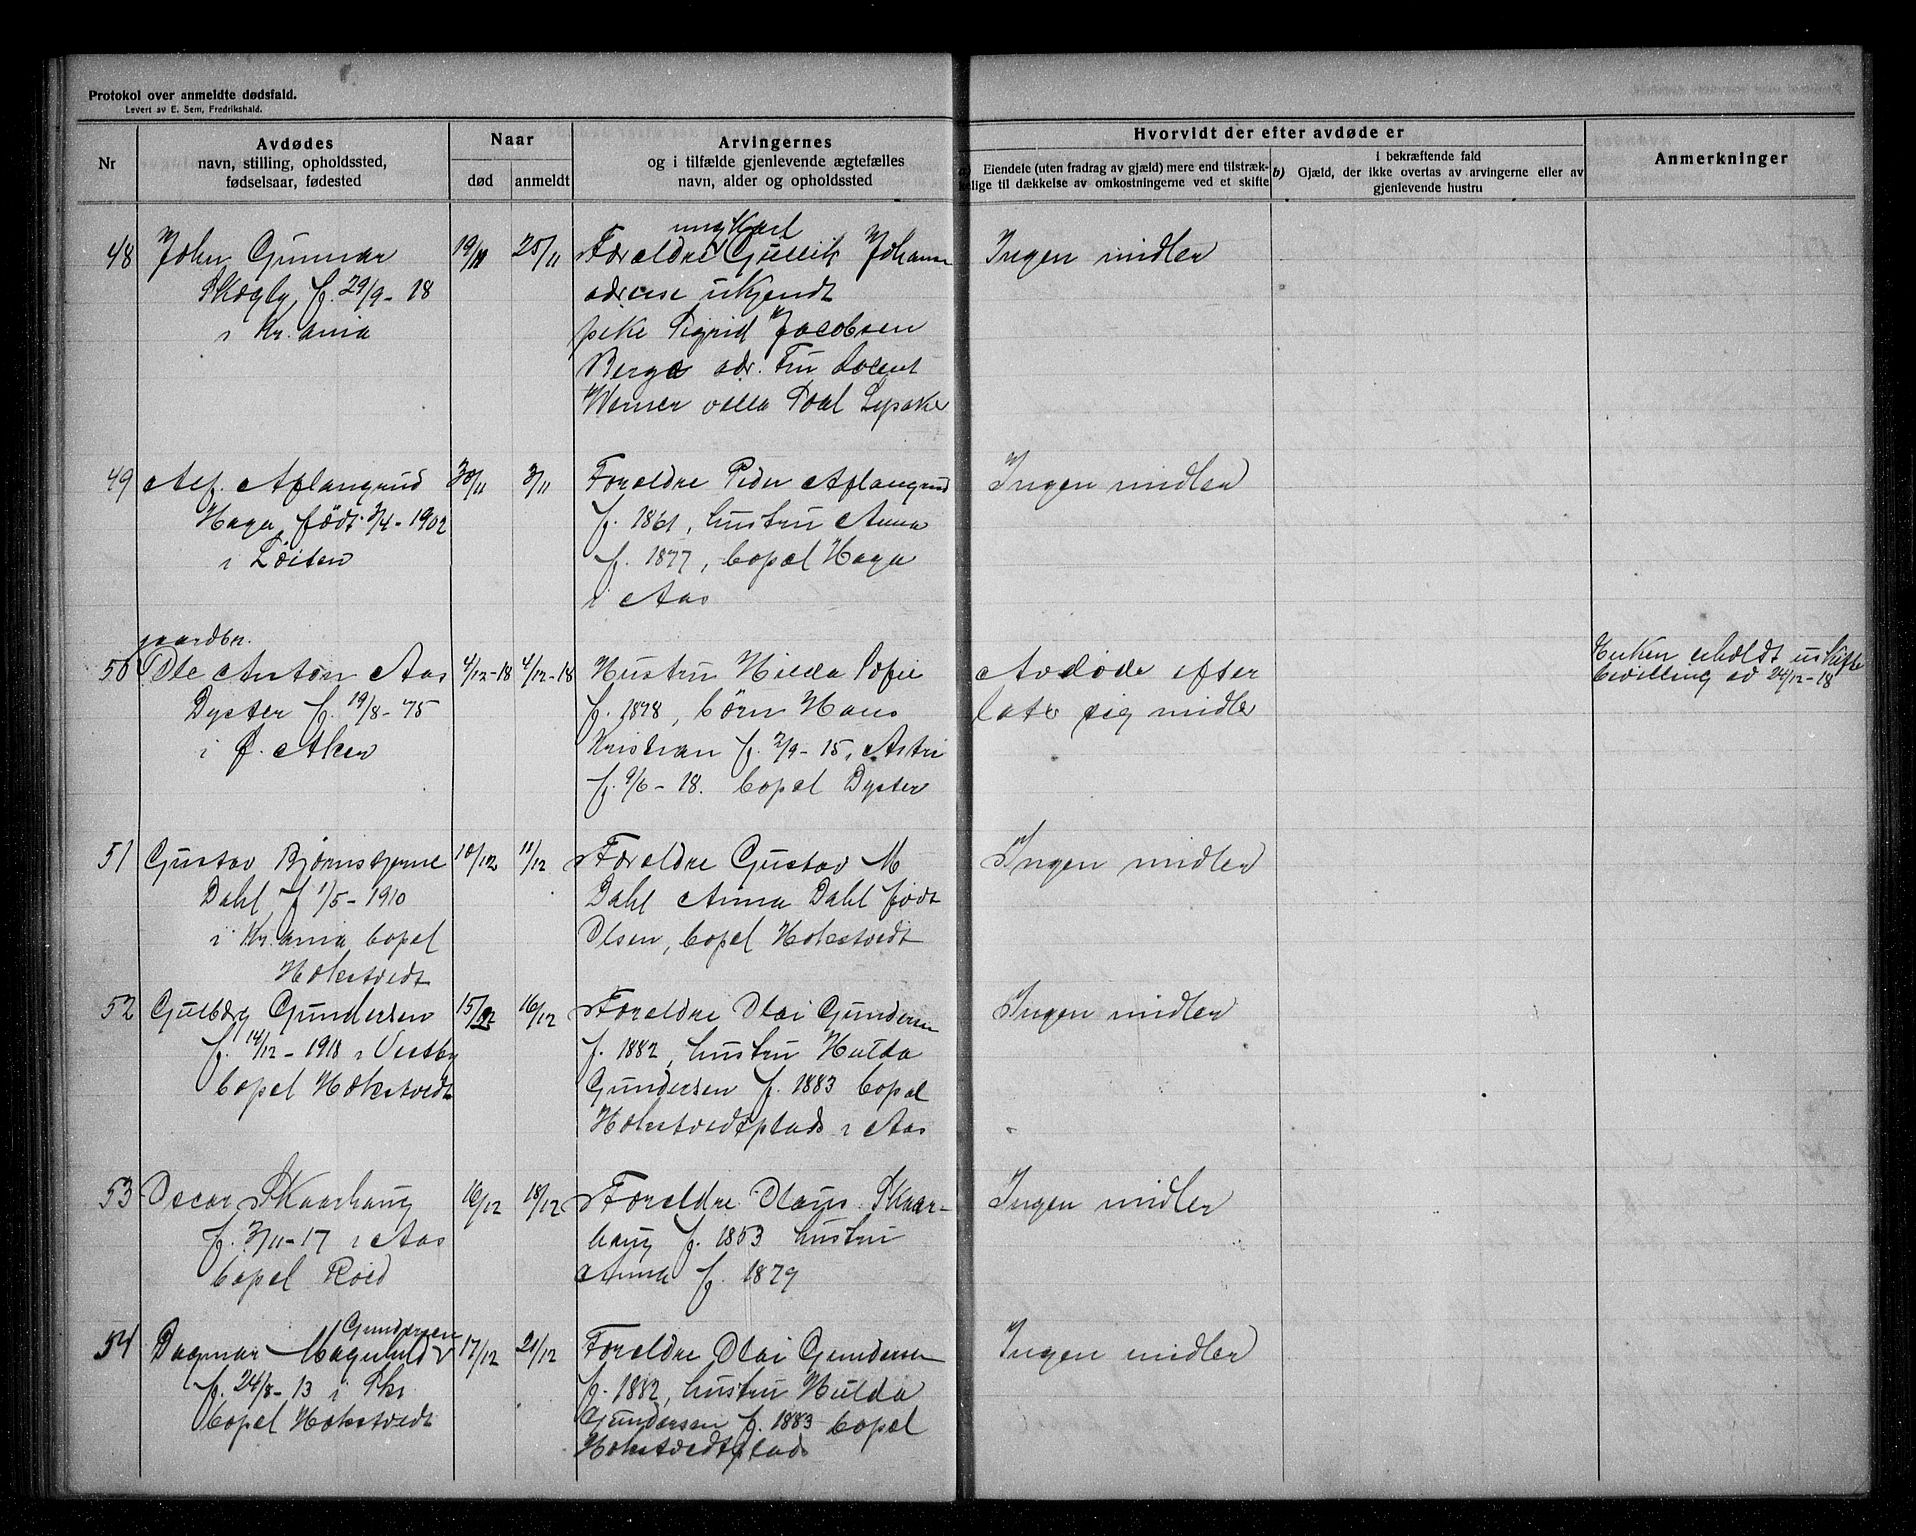 Protokol over anmeldte dødsfald.
Levert av E. Sem, Fredrikshald.
Nr
Avdødes
navn, stilling, opholdssted,
fødselsaar, fødested
Naar
død
anmeldt
Arvingernes
og i tilfælde gjenlevende ægtefælles
navn, alder og opholdssted
Hvorvidt der efter avdøde er
a) Eiendele (uten fradrag av gjæld) mere end tilstræk-
kelige til dækkelse av omkostningerne ved et skifte
b) I bekræftende fald
Gjæld, der ikke overtas av arvingerne eller av
gjenlevende hustru
Anmerkninger
48
John Gunnar
Skogly, f. 29/9-18
i Kr.ania
19/11
25/11
ung Karl
Foreldre Gullik Johanse
adresse ukjendt
pike Sigrid Jacobsen
Berge adr. Fru docent
Werner villa Lysaker
Ingen midler
49
Alf Aflangrud
Haga, født 3/4-1902
i Løiten
30/11
3/11
Foreldre Peder Aflangrud
f. 1861, hustru Anna
f. 1877, bopæl Haga
i Aas
Ingen midler
50
gaardbr.
Ole Anton Aas
Dyster f. 19/8-75
i Ø. Aker
4/12-18
4/12-18
Hustru Hilda Sofie
f. 1878, børn Hans
Kristian f. 2/9-15, Astri
f. 9/6-18. bopel Dyster
Avdøde efter
later sig midler
Enken uskifte
bevilling av 24/12-18
51
Gustav Bjørnstjerne
Dahl f 1/5-1910
i Kr.ania bopel
Holstvedt
10/12
11/12
Foreldre Gustav M
Dahl Anna Dahl født
Olsen, bopel Holstvedt
Ingen midler
52
Gulborg Gundersen
f. 14/12-1918 i Vestby
bopel Holstvedt
15/12
16/12
Foreldre Olai Gundersen
f. 1882, hustru Hulda
Gundersen f. 1883 bopæl
Holstvedtplads i Aas
Ingen midler
53
Oscar Skaarhaug
f. 3/11-17 i Aas
bopel Roed
16/12
18/12
Foreldre Olaus Skaar-
haug f. 1853 hustru
Anna f. 1879
Ingen midler
54
Gundersen
Dagmar Magnhild
f. 24/8-13 i Ski
bopel Holstvedt
17/12
20/12
Foreldre Olai Gundersen
f. 1882, hustru Hulda
Gundersen f. 1883 bopæl
Holstvedtplads
Ingen midler